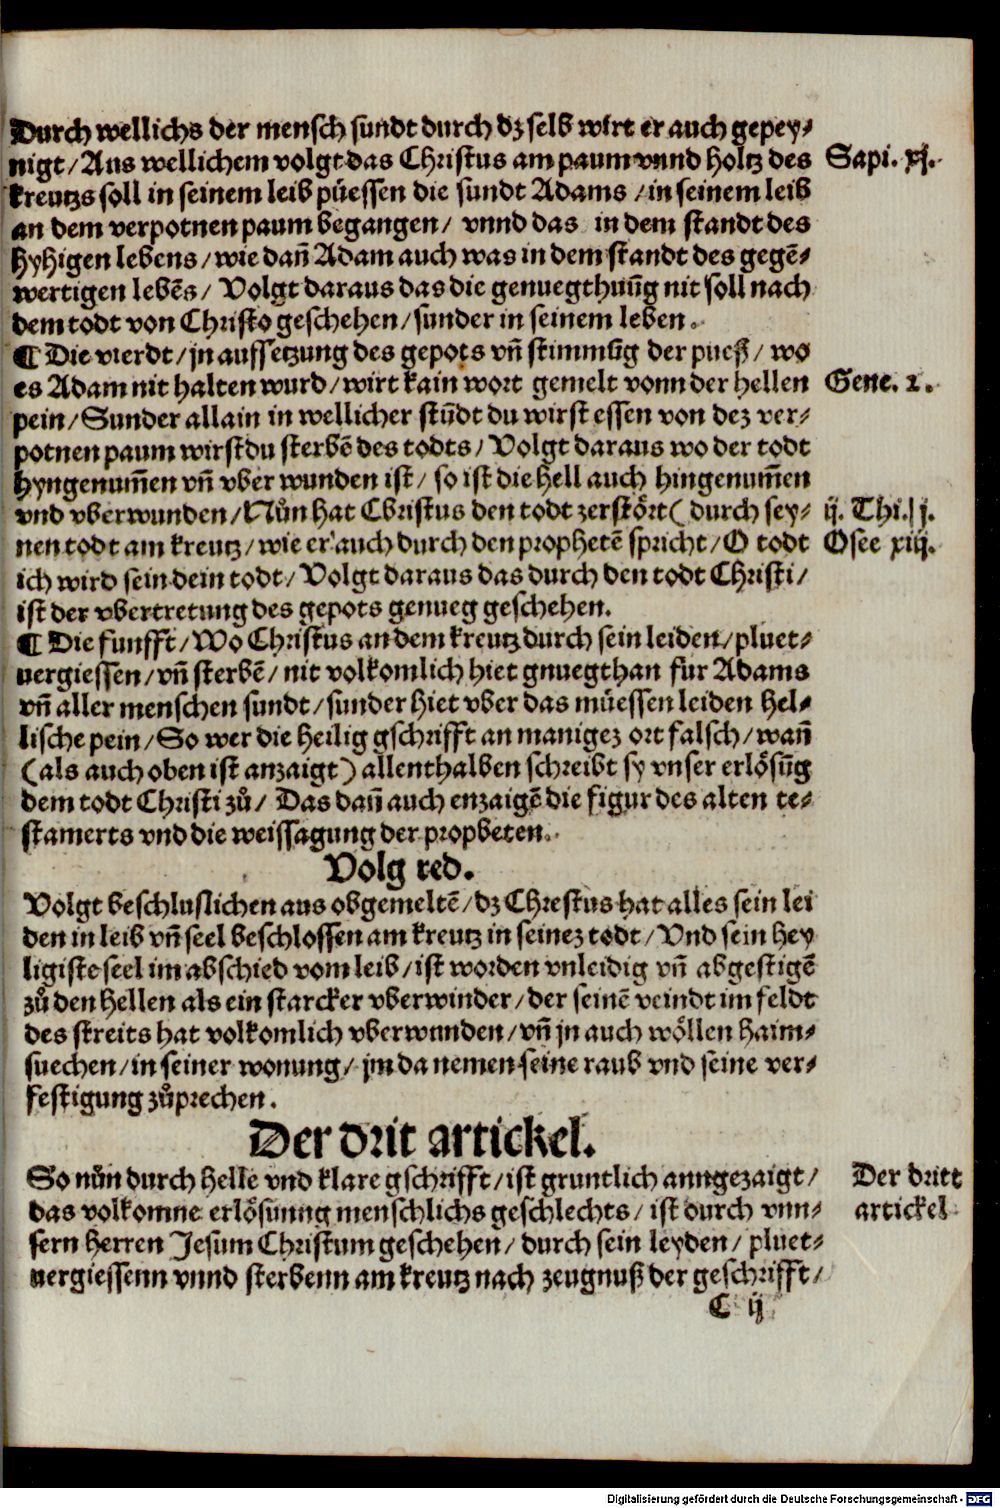 Durch wellichs der mensch sundt durch dz selb wirt er auch gepey⸗
nigt/ Aus wellichem volgt das Christus am paum vnnd holtz des Sapi. xj.
kreutzs soll in seinem leib püessen die sundt Adams /in seinem leib
an dem verpotnen paum begangen/ vnnd das in dem standt des
hyhigen lebens/ wie dañ Adam auch was in dem standt des gegẽ⸗
wertigen lebẽs/ Volgt daraus das die genuegthuũg nit soll nach
dem todt von Christo geschehen/ sunder in seinem leben.
¶ Die vierdt/ jn auffsetzung des gepots vñ stimmũg der puess/ wo
es Adam nit halten wurd/ wirt kain wort gemelt vonn der hellen Gene. 2.
pein/ Sunder allain in wellicher stũdt du wirst essen von dez ver⸗
potnen paum wirst du sterbẽ des todts/ Volgt daraus wo der todt
hyngenum̃en vñ vber wunden ist/ so ist die hell auch hingenum̃en
vnd vberwunden/ Nůn hat Christus den todt zerstört( durch sey⸗ ij. Thi. j.
nen todt am kreutz/ wie er auch durch den prophetẽ spricht/ O todt Osee xiij.
ich wird sein dein todt/ Volgt daraus das durch den todt Christi/
ist der vbertretung des gepots genueg geschehen.
¶ Die funfft/ Wo Christus an dem kreutz durch sein leiden/ pluet⸗
uergiessen/ vñ sterbẽ/ nit volkomlich hiet gnuegthan fur Adams
vñ aller menschen sundt/ sunder hiet vber das müessen leiden hel⸗
lische pein/ So wer die heilig gschrifft an manigez ort falsch/ wañ
(als auch oben ist anzaigt) allenthalben schreibt sy vnser erlösũg
dem todt Christi zů/ Das dañ auch enzaigẽ die figur des alten te⸗
stamerts vnd die weissagung der propheten.
Volg red.
Volgt beschluslichen aus obgemeltẽ/ dz Chrestus hat alles sein lei
den in leib vñ seel beschlossen am kreutz in seinez todt/ Vnd sein hey
ligiste seel im abschied vom leib/ ist worden vnleidig vñ abgestigẽ
zů den hellen als ein starcker vberwinder/ der seinẽ veindt im feldt
des streits hat volkomlich vberwunden/ vñ jn auch wöllen haim⸗
suechen/ in seiner wonung/ jm da nemen seine raub vnd seine ver⸗
festigung zůprechen.
Der drit artickel.
So nůn durch helle vnd klare gschrifft/ ist gruntlich anngezaigt/ Der dritt
das volkomne erlösunng menschlichs geschlechts/ ist durch vnn⸗ artickel
sern herren Jesum Christum geschehen/ durch sein leyden/ pluet⸗
uergiessenn vnnd sterbenn am kreutz nach zeugnuß der geschrifft/
C ij
Digitalisierung gefördert durch die Deutsche Forschungsgemeinschaft - DFG